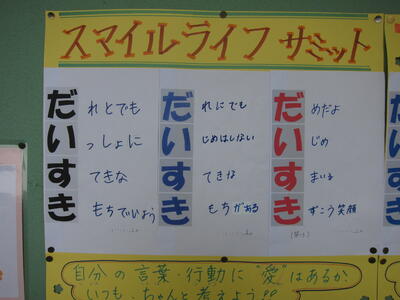 スマイルライフサミット
だれとでも
いっしょに
すてきな
きもちでいよう
だれにでも
いじめはしない
すてきな
きもちがある
だめだよ
いじめ
すまいる
きずこう笑顔
自分の言葉・行動に"愛"はあるか
いつも、ちゃんと考えよう!!